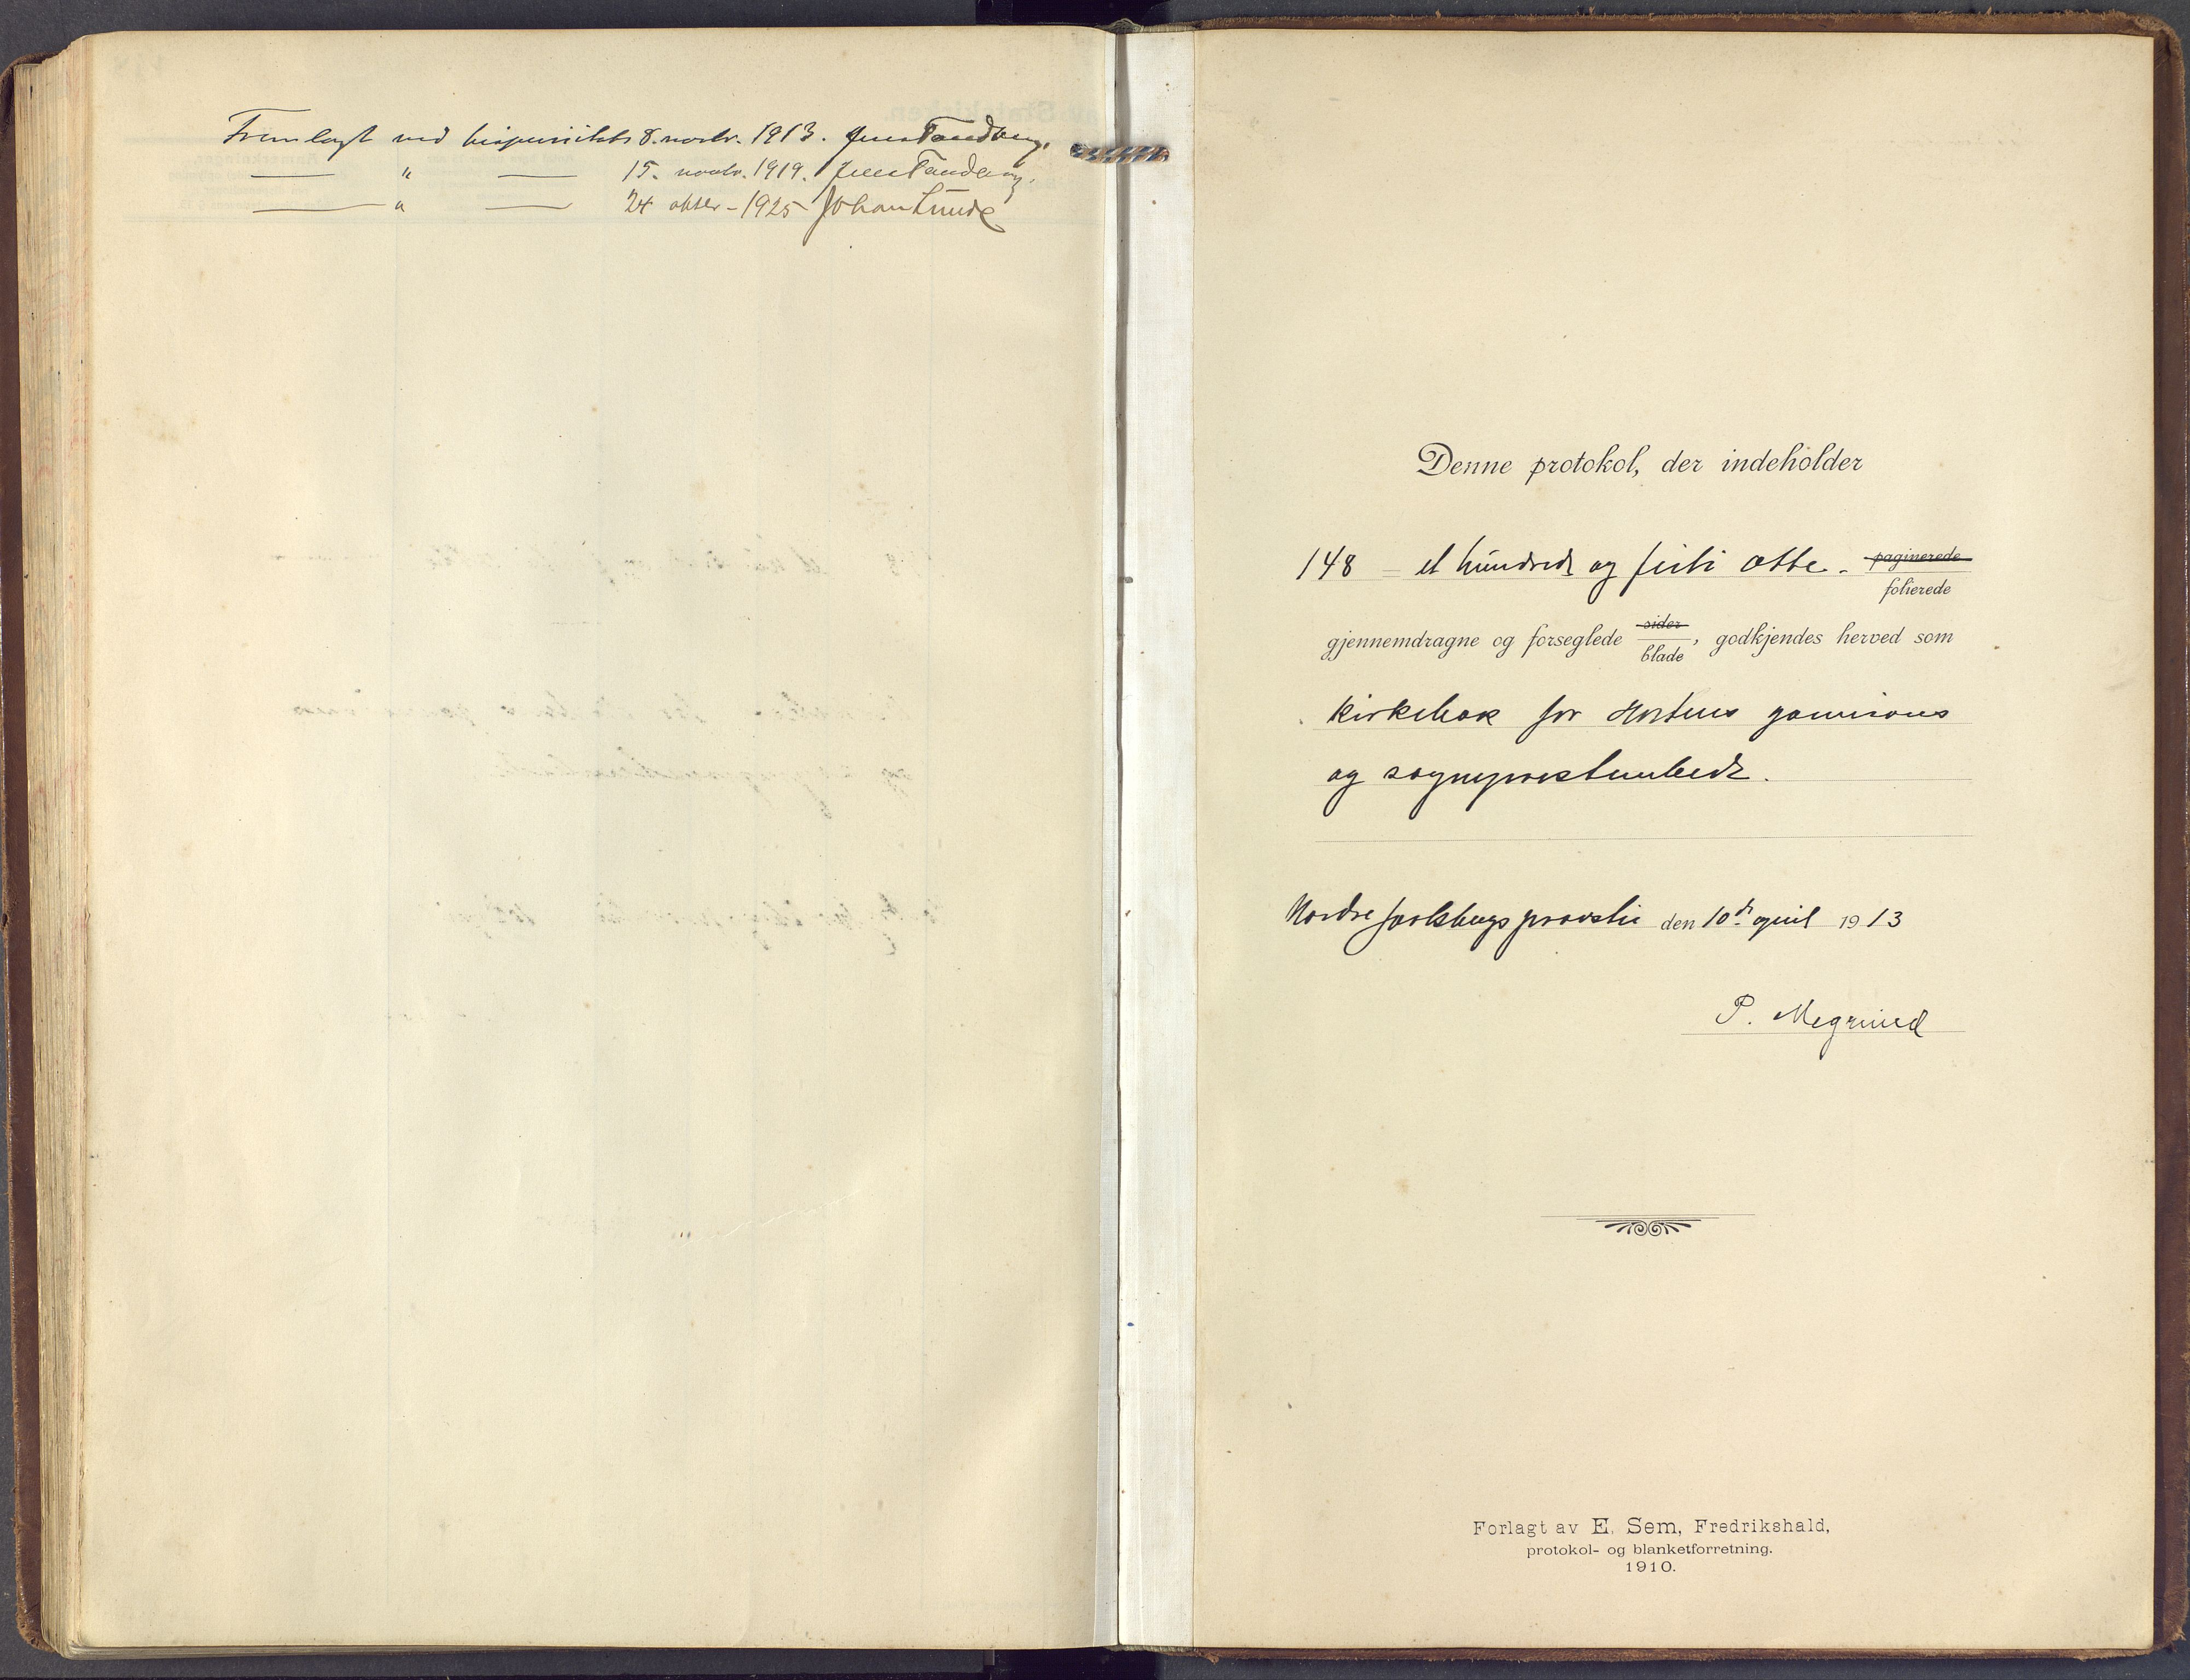 Fremlagt ved bispevisitats 8. novbr. 1913. Jens Tandberg.
— " — 15. novbr. 1919. Jens Tandberg.
— " — 24 oktbr - 1925 Johan Lunde
Denne protokol, der indeholder
148 – et hundrede og firti otte – paginerede
folierede
gjennemdragne og forseglede sider
blade, godkjendes herved som
kirkebok for Hortens garnisons
og sogneprestembede.
Nordre Jarlsbergs provsti den 10de april 1913
P. Magnus
Forlagt av E. Sem, Fredrikshald,
protokol- og blanketforretning.
1910.